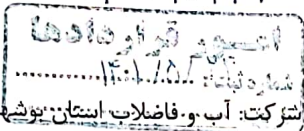 امور قراردادها
شماره ثبت: ۱۴۰۱/۵/
شرکت: آب و فاضلاب استان بوشهر